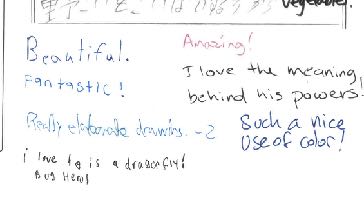 vegetables.
Beautiful.
Fantastic!
Amazing!
I love the meaning
behind his powers!
Really elaborate drawing. -2
Such a nice
use of color!
i love is a dragonfly!
Bug Hero!